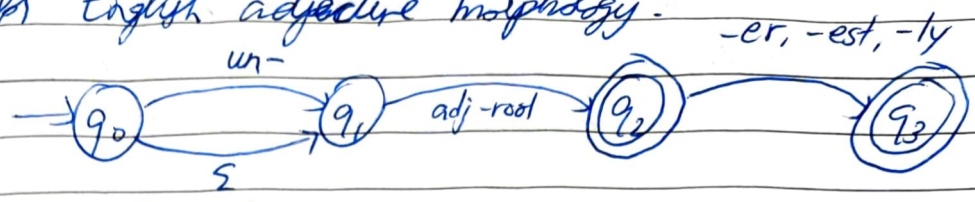 English adjective morphology.
-er, -est, -ly
un-
q0 q1 adj-root q2 q3
Σ